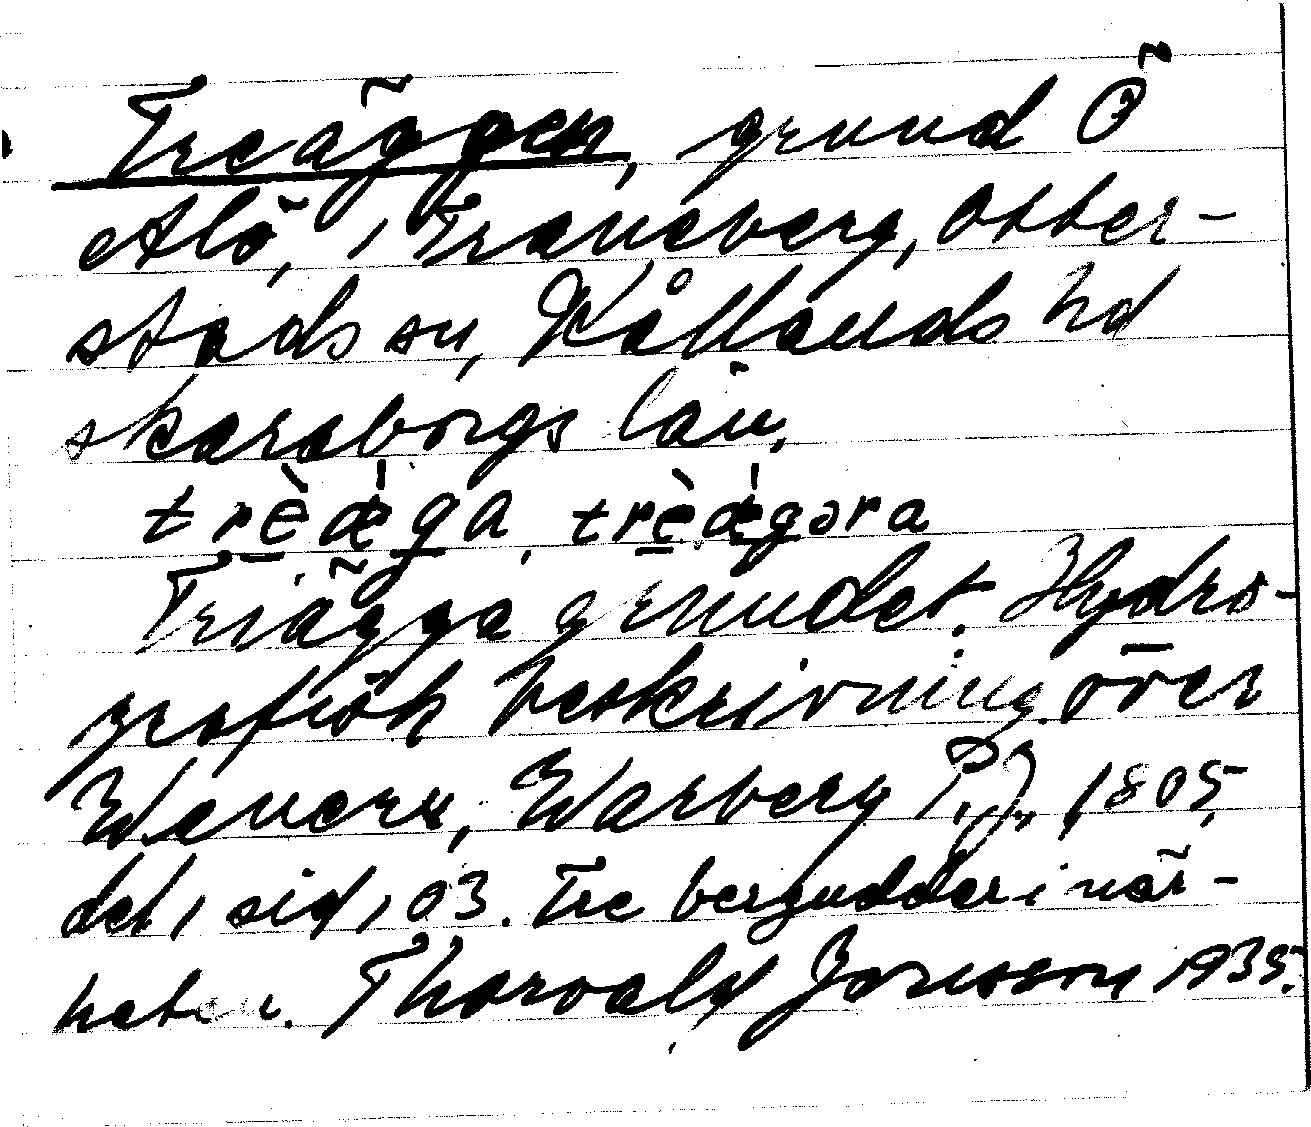 Treäggen, grund Ö
Alö, i Traneberg, Otter-
stads sn, Kållands hd
skaraborgs län,
trèǽga, trèǽgəra
Triägga grundet. Hydro-
grafisk beskrivning över
Wenern, Warberg P.J., 1805,
del 1 sid, 103. Tre berguddar i när-
heten. Thorvald Jonsson 1935.